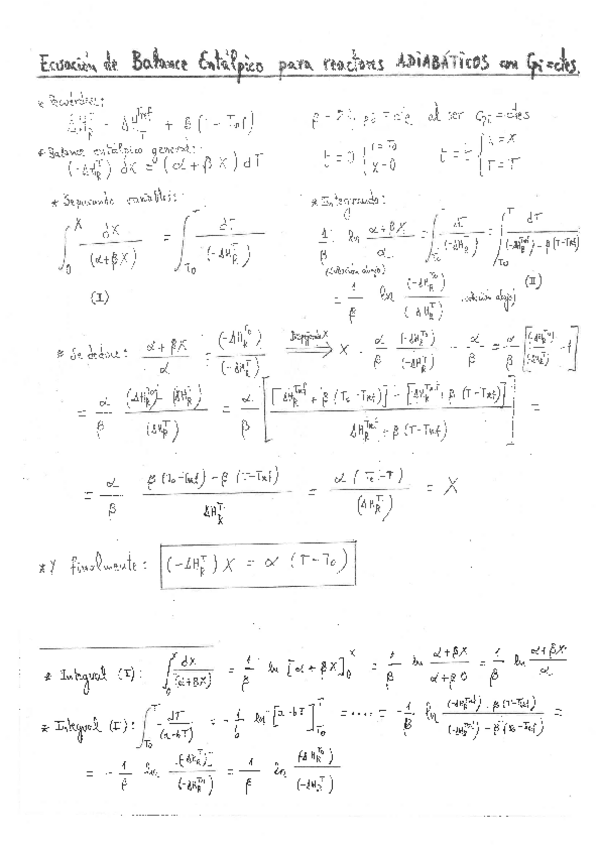 Ecuación de Balance Entálpico para reactores ADIABÁTICOS con Cpi=ctes.
* Recordar:
ΔH_R^T = ΔH_R^Tref + β(T-Tref) β = Σνi Cpi = cte al ser Cpi=ctes
* Balance entálpico general:
(-ΔH_R^T) dX = (α+βX) dT t=0 { T=To X=0 t=t { X=X T=T
* Separando variables: * Integrando:
∫_0^X dX/(α+βX) = ∫_To^T dT/(-ΔH_R^T) 1/β ln (α+βX)/α = ∫_To^T dT/(-ΔH_R^T) = ∫_To^T dT/((-ΔH_R^Tref) - β(T-Tref))
(I) (solución abajo) = 1/β ln (-ΔH_R^To)/(-ΔH_R^T) (solución abajo) (II)
* Se deduce: (α+βX)/α = (-ΔH_R^To)/(-ΔH_R^T) Despejando X ⟹ X = α/β (-ΔH_R^To)/(-ΔH_R^T) - α/β = α/β [(ΔH_R^To)/(ΔH_R^T) - 1]
= α/β ((ΔH_R^To) - (ΔH_R^T))/(ΔH_R^T) = α/β [([ΔH_R^Tref + β(To-Tref)] - [ΔH_R^Tref + β(T-Tref)])/(ΔH_R^Tref + β(T-Tref))] =
= α/β (β(To-Tref) - β(T-Tref))/ΔH_R^T = α(To-T)/(ΔH_R^T) = X
* Y finalmente: (-ΔH_R^T) X = α (T-To)
* Integral (I): ∫_0^X dX/(α+βX) = 1/β ln [α+βX]_0^X = 1/β ln (α+βX)/(α+β0) = 1/β ln (α+βX)/α
* Integral (I): ∫_To^T dT/(a-bT) = -1/b ln [a-bT]_To^T = ..... = -1/β ln ((-ΔH_R^Tref) - β(T-Tref))/((-ΔH_R^Tref) - β(To-Tref)) =
= -1/β ln (-ΔH_R^T)/(-ΔH_R^To) = 1/β ln (-ΔH_R^To)/(-ΔH_R^T)